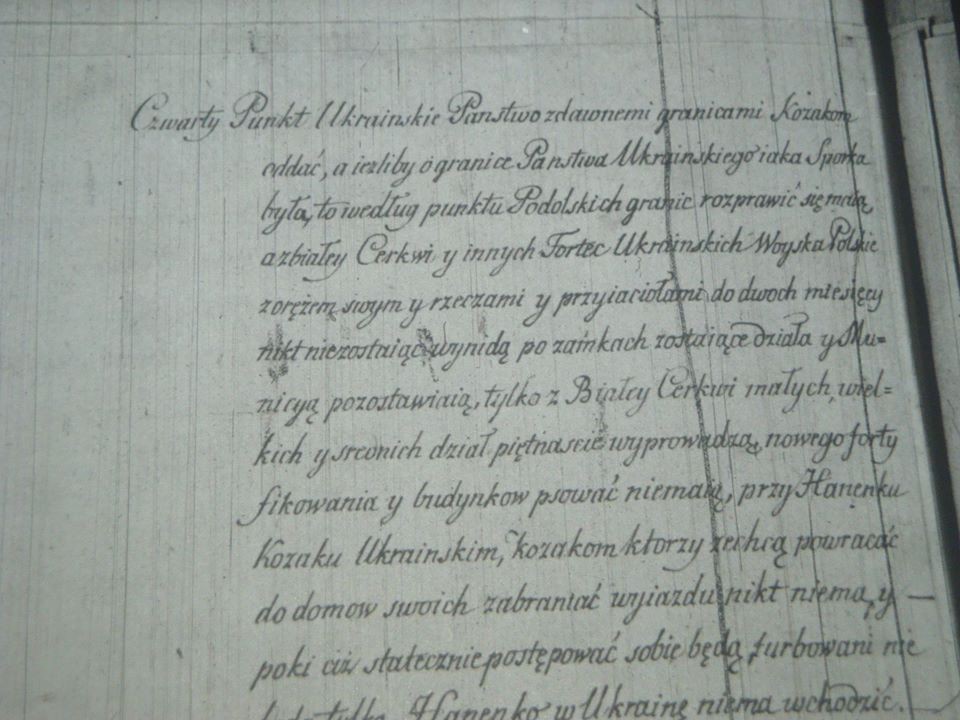 Czwarty Punkt Ukrainskie Panstwo zdawnemi granicami Kozakom
oddać, a iezliby o granice Panstwa Ukrainskiego iaka Sporka
była, to według punktu Podolskich granic rozprawić się maią,
a zbiałey Cerkwi y innych Fortec Ukrainskich Woyska Polskie
zorężem swym y rzeczami y przyiaciołami do dwoch miesięcy
nikt niezostaiąc wynidą po zamkach zostaiące działa y Mu=
nicyą pozostawiaią, tylko z Białey Cerkwi małych, wiel=
kich y srednich dział piętnascie wyprowadzą, nowego forty
fikowania y budynkow psować niemaią, przy Hanenku
Kozaku Ukrainskim, kozakom ktorzy zechcą powracać
do domow swoich zabraniać wyiazdu nikt niema, y —
poki ciż statecznie postępować sobie będą, turbowani nie
tylko Hanenko w Ukrainę niema wchodzić.